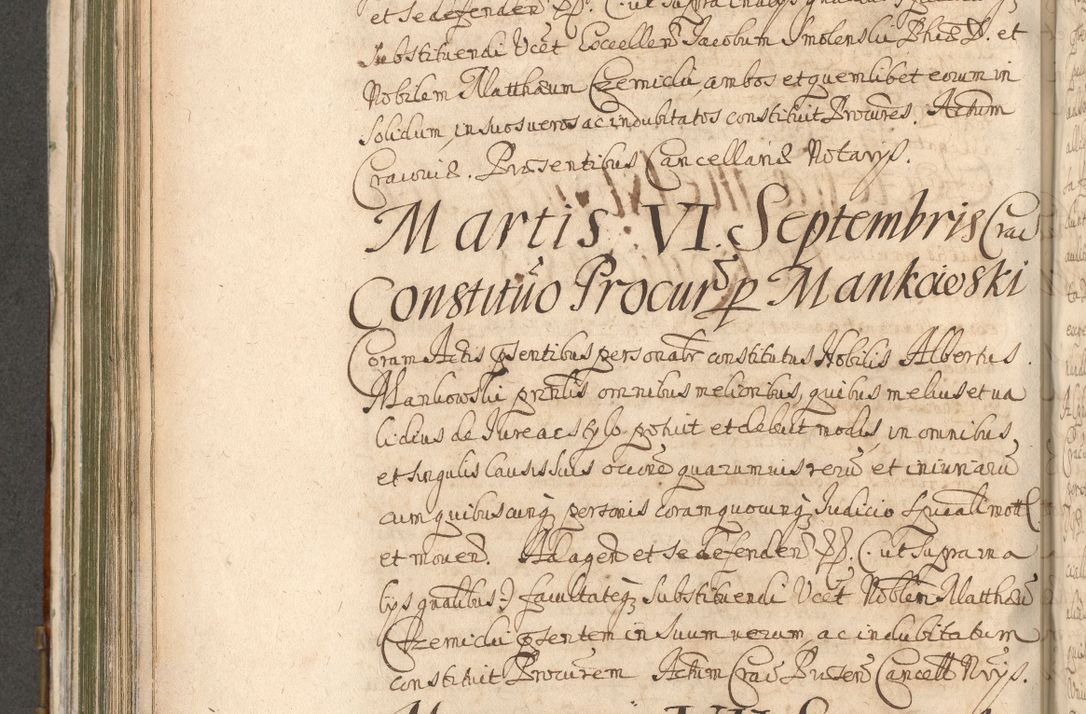 et se defenden PP. C. ut supra in alys
substituendi Vcet Excellen Jacobum Smolenski Phiæ D. et
Nobilem Matthæum Czemicki ambos et quemlibet eorum in
solidum, in suos veros ac indubitatos constituit Procures. Actum
Cracoviæ. Præsentibus Cancellariæ Notarys.
Martis VI. Septembris Crac
Constituo Procur p Mankowski
Coram Actis psentibus personalr constitutus Nobilis Albertus
Mankowski prntis omnibus melioribus, quibus melius et va
lidius de Jure ac stylo potuit et debuit modis, in omnibus
et singulis causis suis occone quarumvis reru et iniuriaru
cum quibuscunq personis coram quocunq Judicio spualimott C.
et moven. Ad agen et se defenden PP. C. ut supra in a
lys gnalibus) facultateq substituendi Vcet Noblem Matthæu
Czemicki psentem in suum verum, ac indubitatum
constituit Procurem Actum Crac Præsen Cancell Nrys.